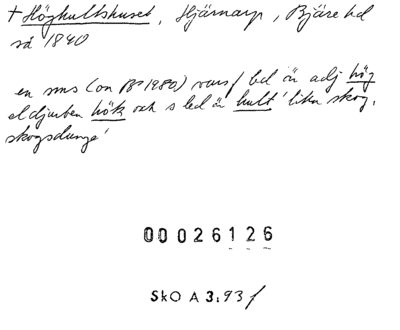 + Högkultshuset, Hjärnarp, Bjäre hd
så 1840
en sms (on B 1980) vars f led är adj hög
el djurben hök och s led är hult 'liten skog,
skogsdunge'
00026126
SkO A 3:93 f